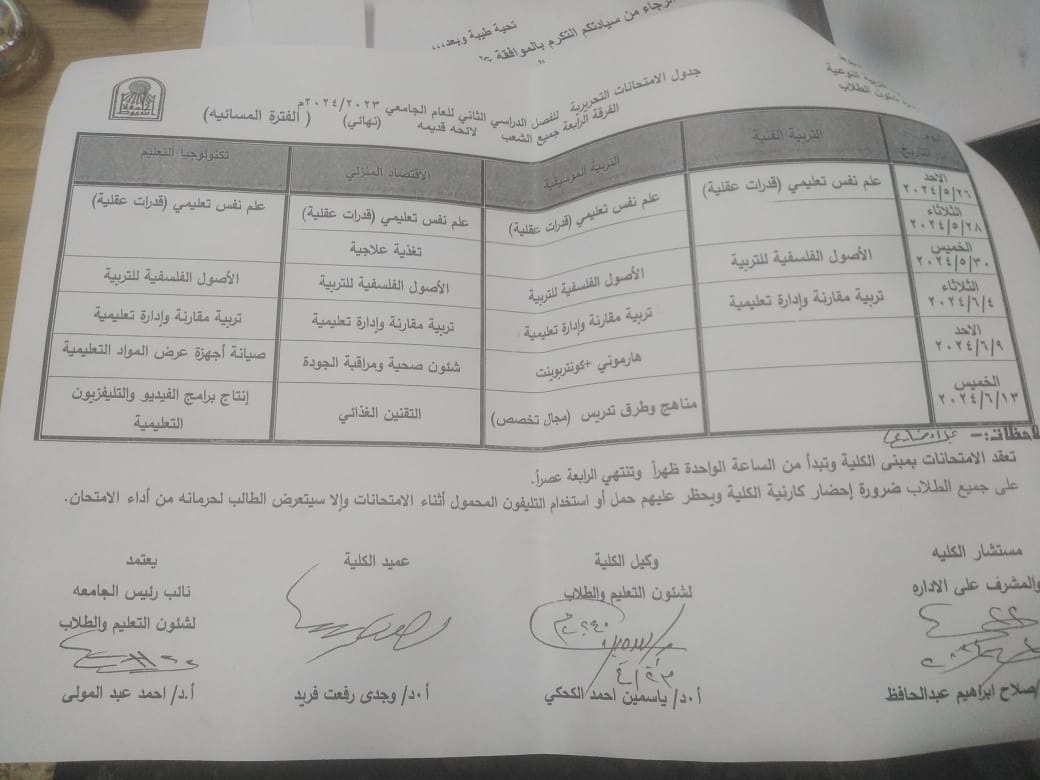 تحية طيبة وبعد،،،
الرجاء من سيادتكم التكرم بالموافقة
شئون الطلاب
جدول الامتحانات التحريرية للفصل الدراسي الثاني للعام الجامعي ٢٠٢٤/٢٠٢٣م
الفرقة الرابعة جميع الشعب لائحه قديمه (نهائي) ( الفترة المسائيه)
التاريخ التربية الفنية التربية الموسيقية الاقتصاد المنزلي تكنولوجيا التعليم
الاحد ٢٠٢٤/٥/٢٦ علم نفس تعليمي (قدرات عقلية) علم نفس تعليمي (قدرات عقلية) علم نفس تعليمي (قدرات عقلية) علم نفس تعليمي (قدرات عقلية)
الثلاثاء ٢٠٢٤/٥/٢٨ تغذية علاجية
الخميس ٢٠٢٤/٥/٣٠ الأصول الفلسفية للتربية الأصول الفلسفية للتربية الأصول الفلسفية للتربية الأصول الفلسفية للتربية
الثلاثاء ٢٠٢٤/٦/٤ تربية مقارنة وإدارة تعليمية تربية مقارنة وإدارة تعليمية تربية مقارنة وإدارة تعليمية تربية مقارنة وإدارة تعليمية
الاحد ٢٠٢٤/٦/٩ هارموني +كونتربوينت شئون صحية ومراقبة الجودة صيانة أجهزة عرض المواد التعليمية
الخميس ٢٠٢٤/٦/١٣ مناهج وطرق تدريس (مجال تخصص) التقنين الغذائي إنتاج برامج الفيديو والتليفزيون التعليمية
تعقد الامتحانات بمبنى الكلية وتبدأ من الساعة الواحدة ظهراً وتنتهي الرابعة عصراً.
على جميع الطلاب ضرورة إحضار كارنية الكلية ويحظر عليهم حمل أو استخدام التليفون المحمول أثناء الامتحانات وإلا سيتعرض الطالب لحرمانه من أداء الامتحان.
مستشار الكليه وكيل الكلية عميد الكلية يعتمد
والمشرف على الاداره لشئون التعليم والطلاب نائب رئيس الجامعه
لشئون التعليم والطلاب
/صلاح ابراهيم عبدالحافظ أ.د/ ياسمين احمد الكحكي أ.د/ وجدى رفعت فريد أ.د/ احمد عبد المولى